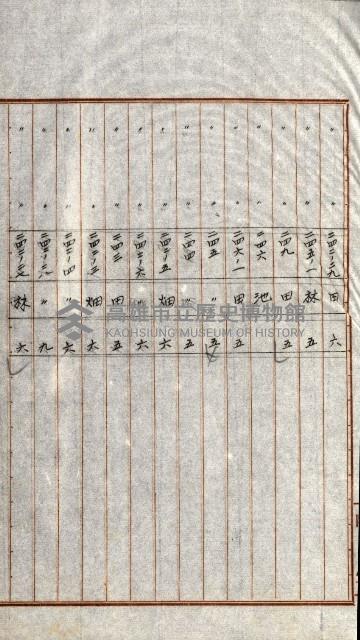 〃 〃 二四二ノ九 田 六
〃 〃 二四五ノ一 林 五
〃 〃 二四九 田 五
〃 〃 二四六 池
〃 〃 二四六ノ一 田 五
〃 〃 二四五 〃 五
〃 〃 二四四 〃 五
〃 〃 二四二ノ五 畑 六
〃 〃 二四二ノ六 〃 六
〃 〃 二四三 田 五
〃 〃 畑 六
〃 〃 二四二ノ四 〃 六
〃 〃 〃 九
〃 〃 林 六
高雄市立歷史博物館
KAOHSIUNG MUSEUM OF HISTORY